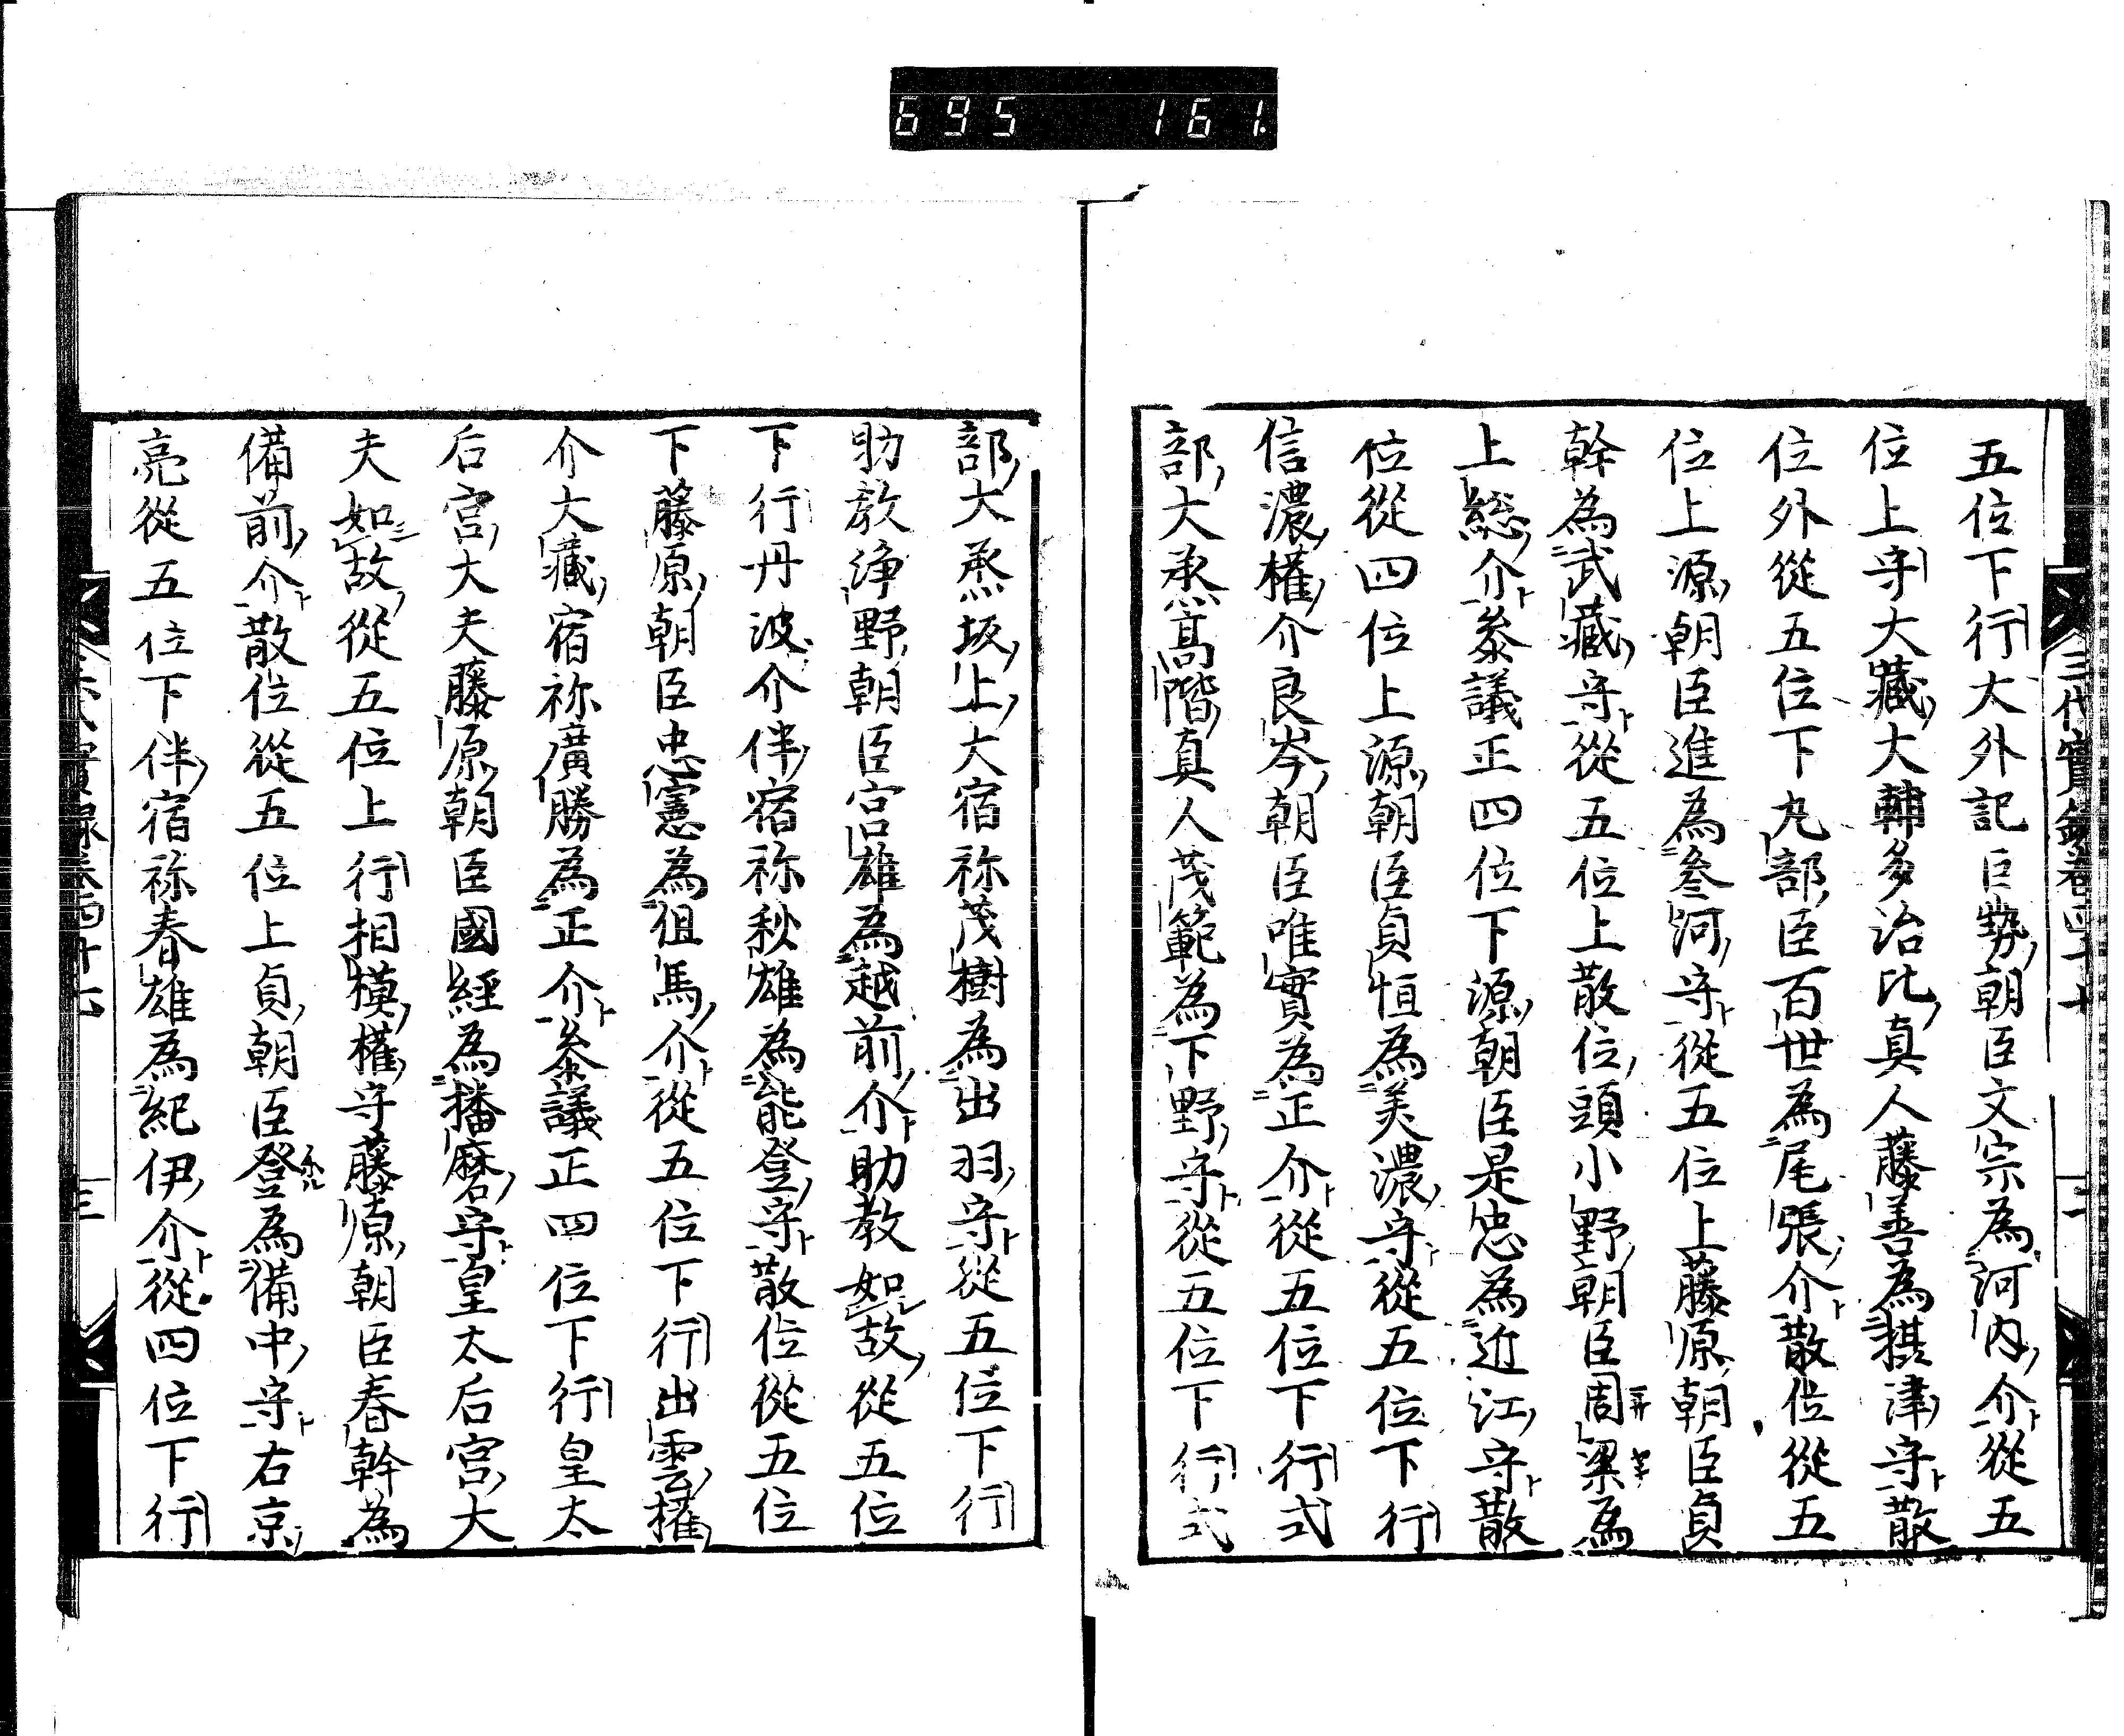 695 161
三代實録卷四十七
二
五位下行大外記巨勢朝臣文宗為河内介從五
位上守大藏大輔多治比真人藤善為摂津守散
位外從五位下丸部臣百世為尾張介散位從五
位上源朝臣進為叅河守從五位上藤原朝臣貞
幹為武藏守從五位上散位頭小野朝臣周梁為
上総介叅議正四位下源朝臣是忠為近江守散
位從四位上源朝臣貞恒為美濃守從五位下行
信濃權介良岑朝臣唯實為正介從五位下行式
部大丞髙階真人茂範為下野守從五位下行式
部大丞坂上大宿祢茂樹為出羽守從五位下行
助教淨野朝臣宮雄為越前介助教如故從五位
下行丹波介伴宿祢秋雄為能登守散位從五位
下藤原朝臣忠憲為但馬介從五位下行出雲權
介大藏宿祢廣勝為正介叅議正四位下行皇太
后宮大夫藤原朝臣國經為播磨守皇太后宮大
夫如故從五位上行相模權守藤原朝臣春幹為
備前介散位從五位上貞朝臣登為備中守右京
亮從五位下伴宿祢春雄為紀伊介從四位下行
三代實録卷四十七
三